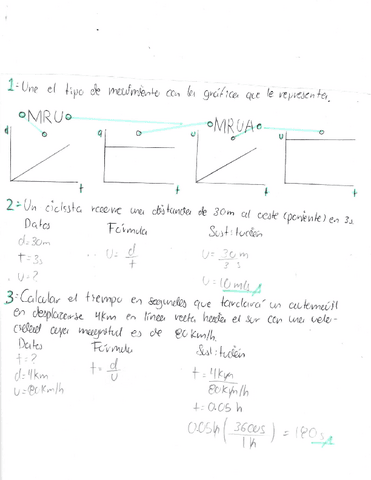 1= Une el tipo de movimiento con la gráfica que le represente.
MRU MRUA
d a v v
t t t t
2= Un ciclista recorre una distancia de 30m al oeste (poniente) en 3s
Datos Fórmula Sustitución
d=30m v=d/t v=30m/3s
t=3s
v=? v=10m/s
3= Calcular el tiempo en segundos que tardará un automóvil
en desplazarse 4km en línea recta hacia el sur con una velo-
cidad cuya magnitud es de 80km/h.
Datos Fórmula Sustitución
t=? t=d/v t=4km/80km/h
d=4km
v=80km/h t=0.05h
0.05h(3600s/1h)=180s